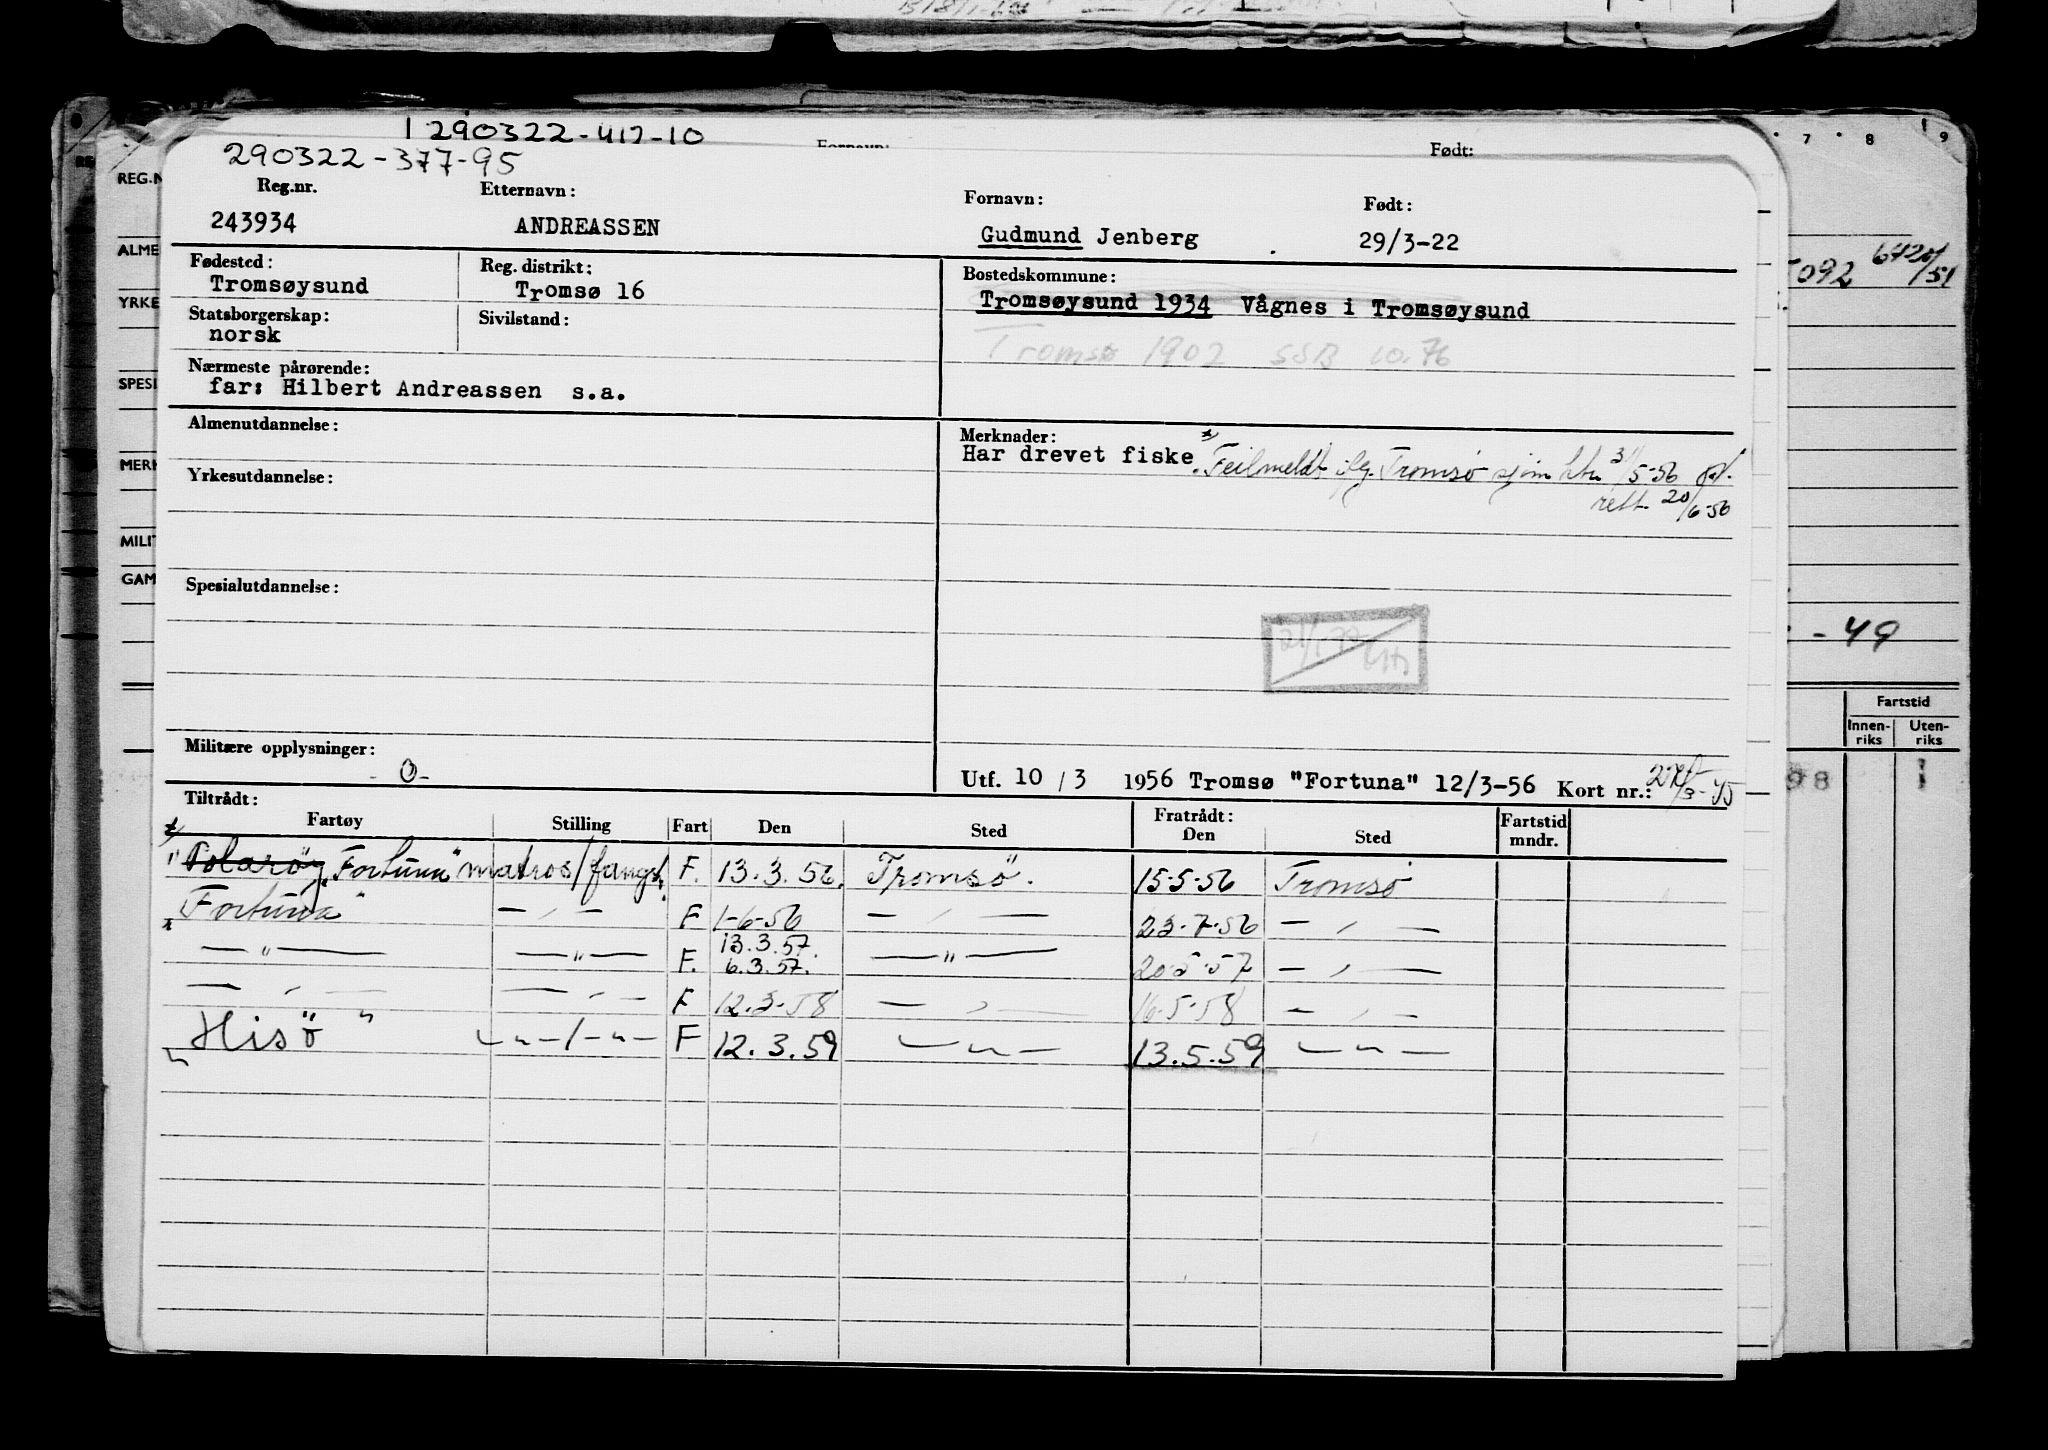 1 290322-412-10
290322-377-95
Fornavn:
Født:
Reg.nr. Etternavn: Fornavn: Født:
243934 ANDREASSEN Gudmund Jenberg 29/3-22
Fødested: Reg. distrikt: Bostedskommune:
Tromsøysund Tromsø 16 Tromsøysund 1934 Vågnes i Tromsøysund
Statsborgerskap: Sivilstand:
norsk
Tromsø 1902 SSB 10.76
Nærmeste pårørende:
far: Hilbert Andreassen s.a.
Almenutdannelse: Merknader:
Har drevet fiske. Feilmeldt iflg. Tromsø sjøm. ktr. 31/5-56
rett. 20/6-56
Yrkesutdannelse:
Spesialutdannelse:
Militære opplysninger:
-0-
Utf. 10/3 1956 Tromsø "Fortuna" 12/3-56 Kort nr.:
Tiltrådt: Fratrådt: Fartstid
Fartøy Stilling Fart Den Sted Den Sted mndr.
"Polarøy Fortuna" matros/fangst. F. 13.3.56. Tromsø. 15-5-56 Tromsø
Fortuna" — " — F 1-6-56 — " — 23-7-56 — " —
— " — — " — F. 13.3.57. 6.3.57. — " — 20-5-57 — " —
— " — — " — F 12.3-58 — " — 16-5-58 — " —
"Hisö" — " —/— " — F 12.3.59 — " — 13.5.59 — " —
REG.N
ALME
YRKE
SPESI
MERK
MILIT
GAM
7 8 9
-49
Fartstid
Innen-
riks
Uten-
riks
98 1